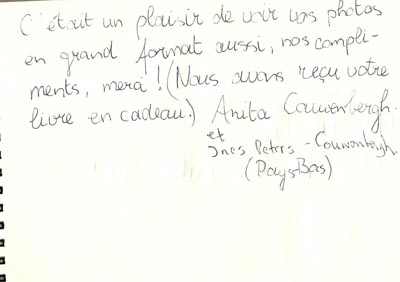 C'était un plaisir de voir vos photos
en grand format aussi, nos compli-
ments, merci! (Nous avons reçu votre
livre en cadeau.) Anita Couwenbergh.
et
Ines Peters - Couwenbergh.
(Pays-Bas)